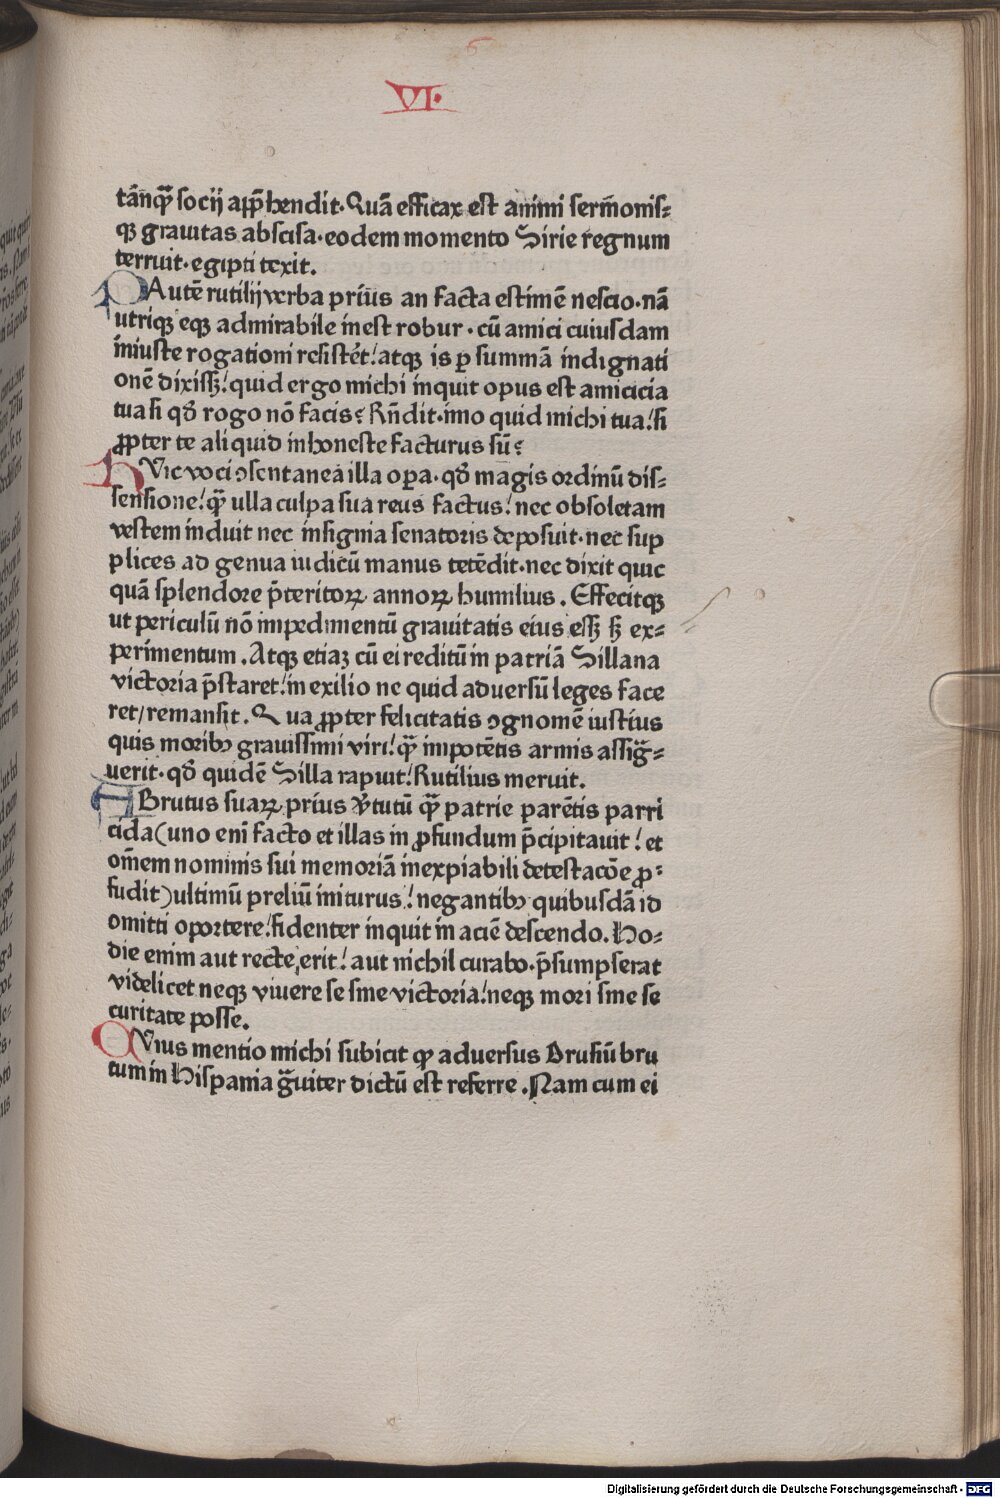 6
VI.
tānꝙ̄ socij app̄hendit. Quā efficax est animi serm̄onis⸗
qꝫ grauitas abscisa. eodem momento Sirie regnum
terruit. egipti texit.
P Autē rutilij verba prius an facta estimē nescio. nā
utriqꝫ eqꝫ admirabile inest robur. cū amici cuiusdam
iniuste rogationi resistēt! atqꝫ is ꝑ summā indignati
onē dixissꝫ! quid ergo michi inquit opus est amicicia
tua si qd̄ rogo nō facis? Rn̄dit. imo quid michi tua! si
ꝓpter te aliquid inhoneste facturus sū?
H Vic voci ↄsentanea illa oꝑa. qd̄ magis ordinū dis⸗
sensione! ꝙ̄ ulla culpa sua reus factus! nec obsoletam
vestem induit nec insignia senatoris deposuit. nec sup
plices ad genua iudicū manus tetēdit. nec dixit quic
quā splendore p̄teritoꝝ annoꝝ humilius. Effecitqꝫ
ut periculū nō impedimentū grauitatis eius essꝫ sꝫ ex⸗
perimentum. Atqꝫ etiaꝫ cū ei reditū in patriā Sillana
victoria p̄staret! in exilio ne quid aduersū leges face
ret/ remansit. Qua ꝓpter felicitatis ↄgnomē iustius
quis moribꝰ grauissimi viri! ꝙ̄ impotētis armis assig̃⸗
uerit. qd̄ quidē Silla rapuit! Rutilius meruit.
M Brutus suaꝝ prius v̓tutū ꝙ̄ patrie parētis parri
cida (uno enī facto et illas in ꝓfundum p̄cipitauit! et
om̄em nominis sui memoriā inexpiabili detestacōe ꝓ⸗
fudit) ultimū preliū initurus! negantibꝰ quibusdā id
omitti oportere! fidenter inquit in aciē descendo. Ho⸗
die enim aut recte erit! aut nichil curabo. p̄sumpserat
videlicet neqꝫ viuere se sine victoria! neqꝫ mori sine se
curitate posse.
C Vius mentio michi subicit ꝙ aduersus Brusiū bru
tum in Hispania g̃uiter dictū est referre. Nam cum ei
Digitalisierung gefördert durch die Deutsche Forschungsgemeinschaft - DFG